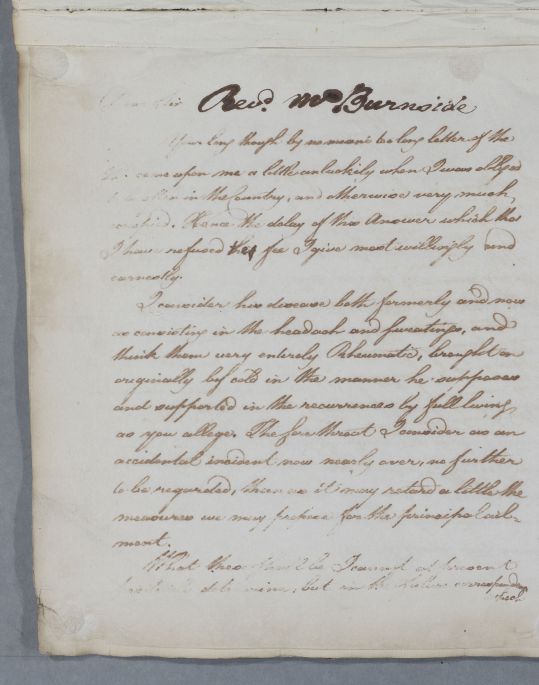 Dear Sir Revd. Mr Burnside
Your long though by no means too long letter of the
came upon me a little unluckily when I was obliged
to be often in the Country, and otherwise very much
occupied. Hence the delay of this Answer which tho
I have refused the fee I give most willingly and
earnestly.
I consider his disease both formerly and now
as consisting in the headach and sweatings, and
think them very entirely Rheumatic, brought on
originally by cold in the manner he supposes
and supported in the recurrences by full living,
as you allege. The sore throat I consider as an
accidental incident now nearly over, no further
to be regarded, than as it may retard a little the
measures we may propose for the principal ail-
ment.
What these should be I cannot at present
determine, but in the future correspondence